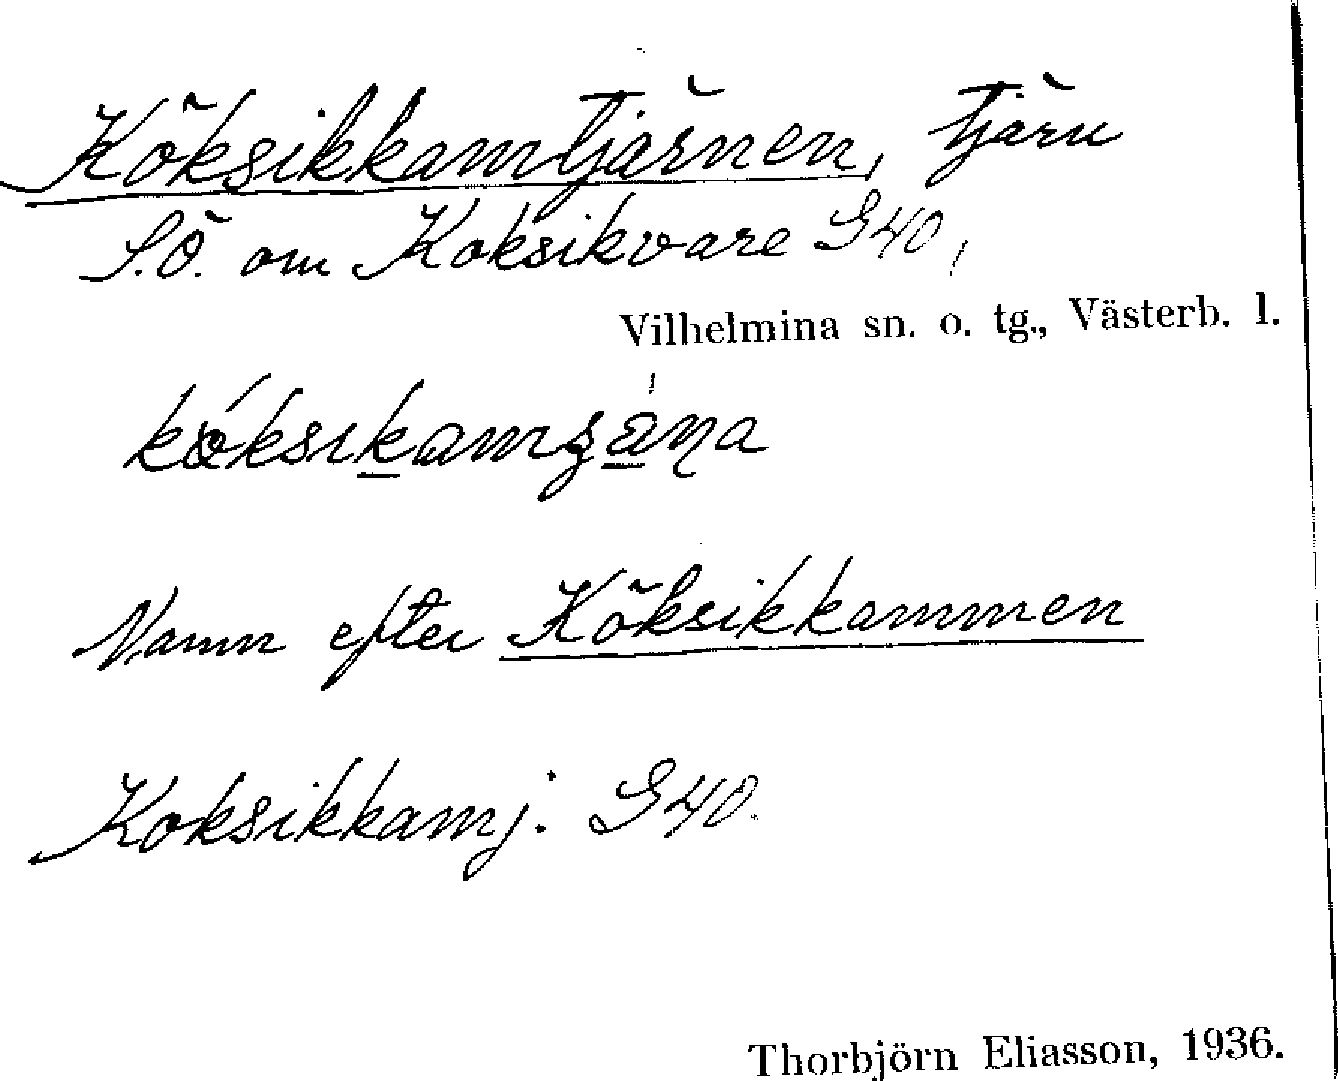 Köksikkamtjärnen, tjärn
S.Ö. om Koksikvare G40,
Vilhelmina sn. o. tg., Västerb. l.
Namn efter Köksikkammen
Koksikkamj: G40.
Thorbjörn Eliasson, 1936.